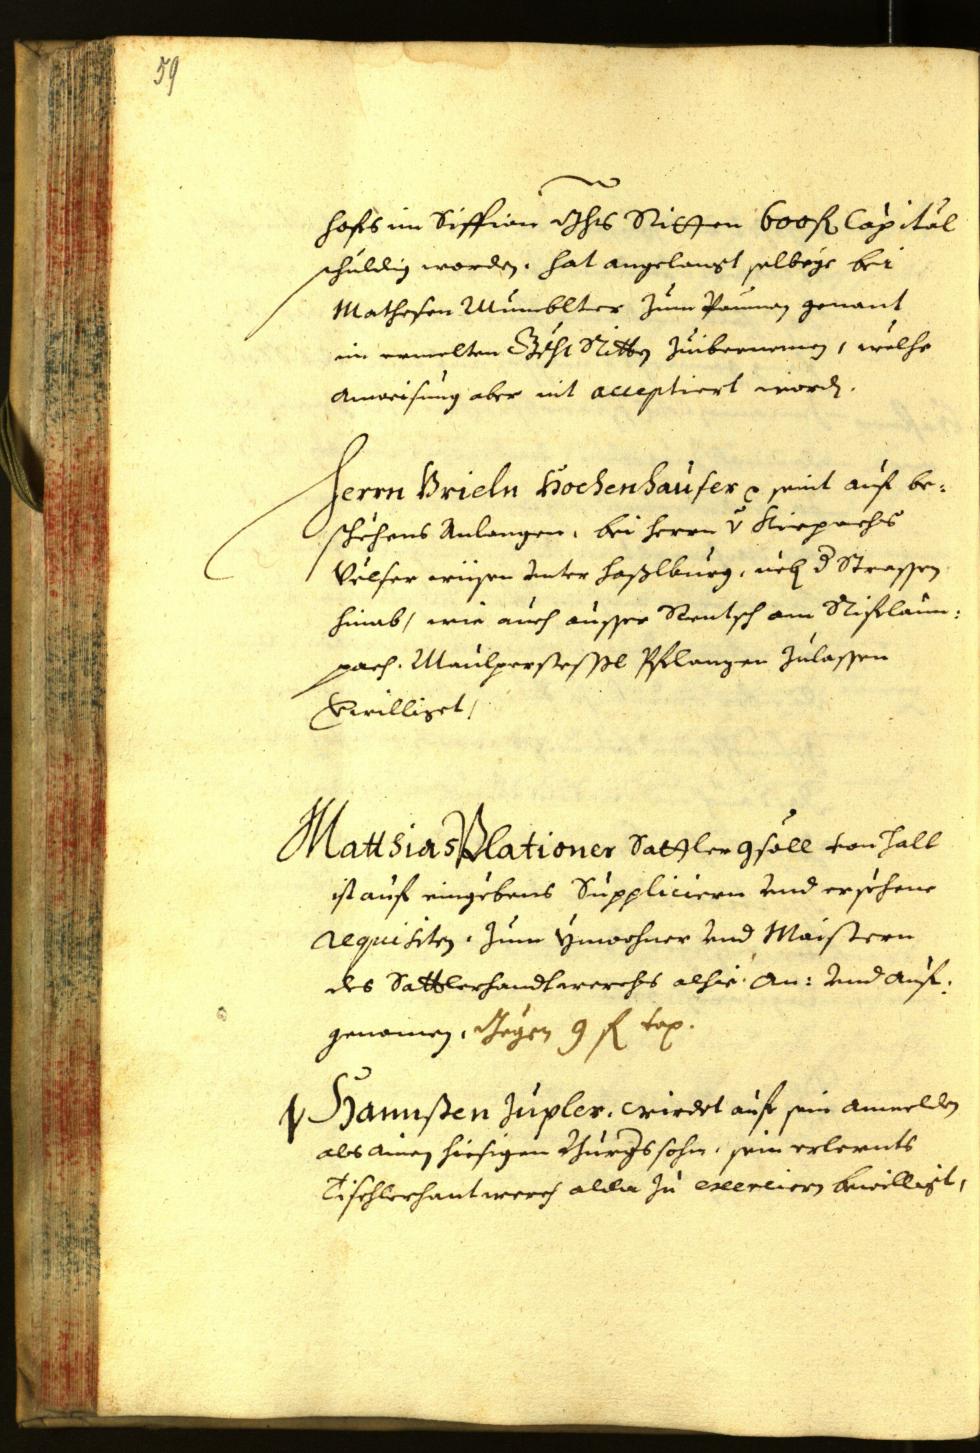 59
hofs im Siffian Ghts Ritten 600 fl Capital
schuldig worden. hat angelangt selbige bei
Mathesen Mumblter zum Paumen genant
in ermelten Gricht Ritten zuübernemen, welche
Anweisung aber nit acceptiert word.
Herrn Brieln Hochenhauser seint auf be-
schehens Anlangen, bei Herrn v Kirpachs
Velser wisen unter Haslburg, neb d Strassen
hinab, wie auch ausser Rentsch am
pach. Maulpersessl Pflanzen zulassen
bewilliget,
Matthias Plationer Sattlergsöll von Hall
ist auf eingebens Suppliciern und ersehene
requisiten. zum Ynwohner und Maistern
des Sattlerhandtwerchs alhie. An: und auf:
genomen, Gegen 9 fl tax.
Hannsen Zupler. wirdet auf sein anmelden
als ainen hiesigen Burgssohn. sein erlernts
Tischlerhantwerch alda zu exerciern bewilligt,